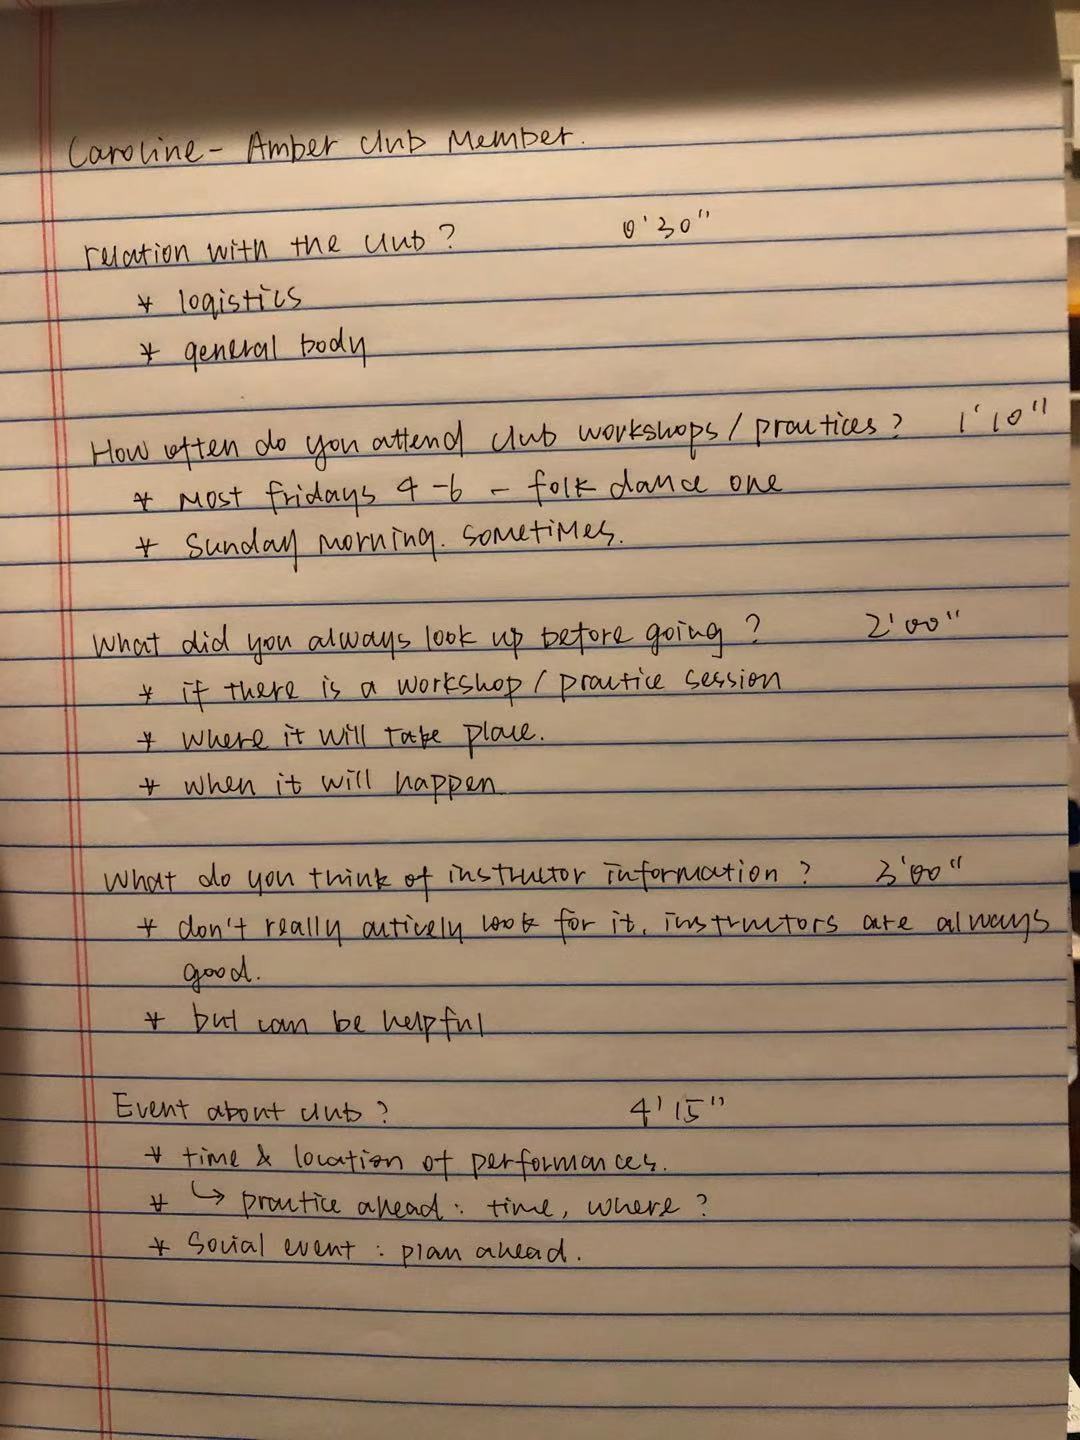 Caroline - Amber Club Member.
relation with the club? 0'30"
* logistics
* general body
How often do you attend club workshops / practices? 1'10"
* Most fridays 4-6 - folk dance one
* Sunday morning. sometimes.
What did you always look up before going? 2'00"
* if there is a workshop / practice session
* where it will take place.
* when it will happen
What do you think of instructor information? 3'00"
* don't really actively look for it. instructors are always
good.
* but can be helpful
Event about club? 4'15"
* time & location of performances.
* ↳ practice ahead: time, where?
* Social event: plan ahead.